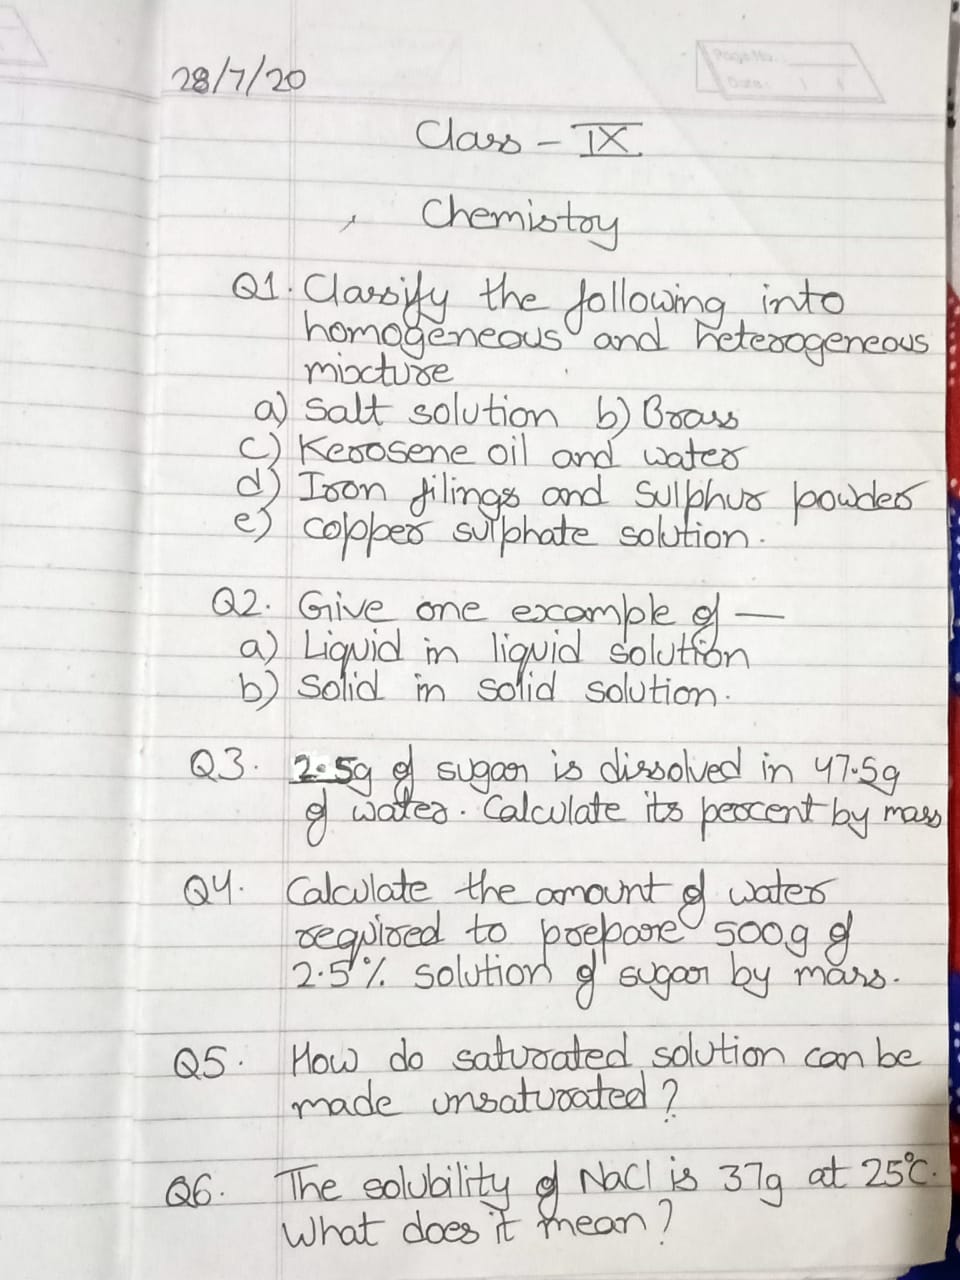 Page No.
Date:
28/7/20
Class - IX
Chemistry
Q1. Classify the following into
homogeneous and heterogeneous
mixture
a) Salt solution b) Brass
c) Kerosene oil and water
d) Iron filings and Sulphur powder
e) copper sulphate solution.
Q2. Give one example of —
a) Liquid in liquid solution
b) Solid in solid solution.
Q3. 2.5g of sugar is dissolved in 47.5g
of water. Calculate its percent by mass
Q4. Calculate the amount of water
required to prepare 500g of
2.5% solution of sugar by mass.
Q5. How do saturated solution can be
made unsaturated?
Q6. The solubility of NaCl is 37g at 25°C.
What does it mean?